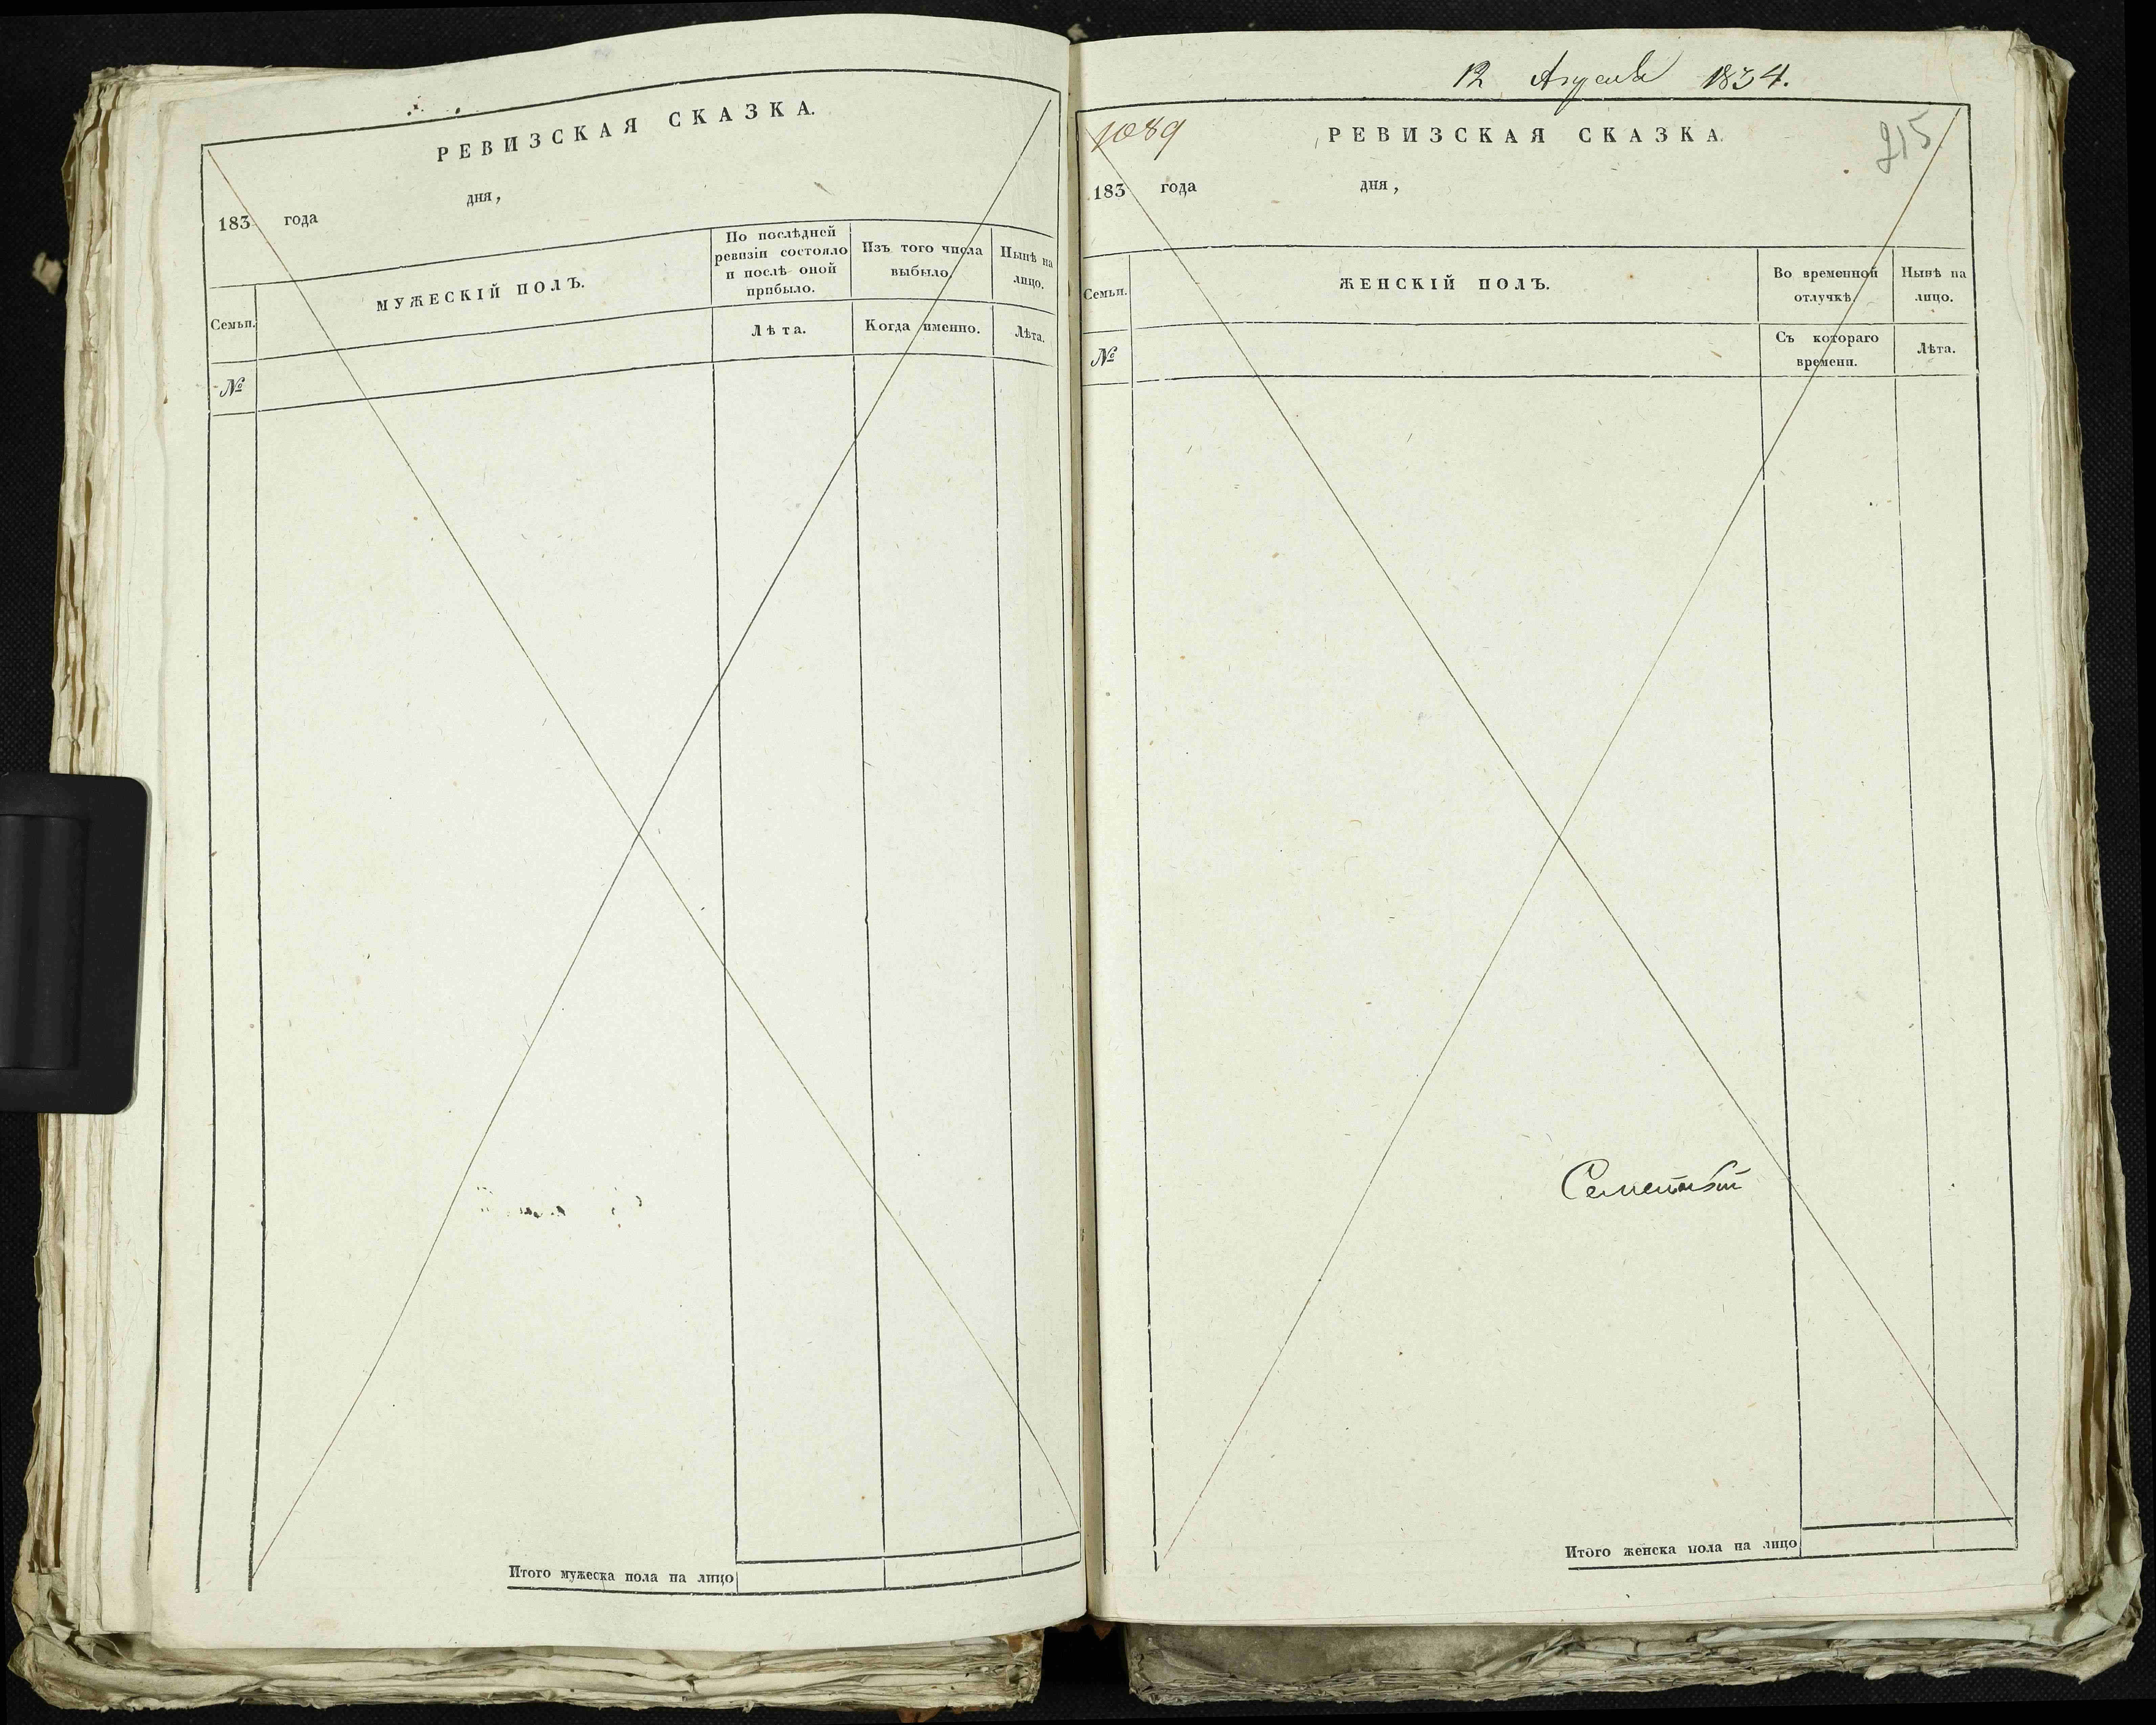 РЕВИЗСКАЯ СКАЗКА.
183 года дня,
Семьи.
№
МУЖЕСКІЙ ПОЛЪ.
По послѣдней
ревизіи состояло
и послѣ оной
прибыло.
Лѣта.
Изъ того числа
выбыло.
Когда именно.
Нынѣ на
лицо.
Лѣта.
Итого мужеска пола на лицо
12 Августа 1834.
1089
РЕВИЗСКАЯ СКАЗКА.
215
183 года дня,
Семьи.
№
ЖЕНСКІЙ ПОЛЪ.
Во временной
отлучкѣ.
Съ котораго
времени.
Нынѣ на
лицо.
Лѣта.
Итого женска пола на лицо